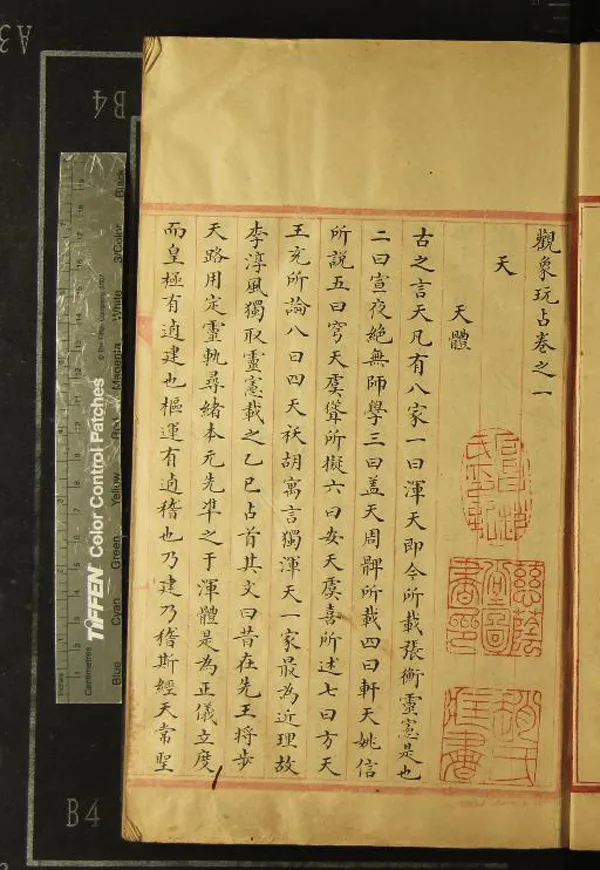 觀象玩占卷之一
天
天體
古之言天凡有八家一曰渾天即今所載張衡靈憲是也
二曰宣夜絶無師學三曰盖天周髀所載四曰軒天姚信
所説五曰穹天虞聳所擬六曰安天虞喜所述七曰方天
王充所論八曰四天祅胡寓言獨渾天一家最為近理故
李淳風獨取靈憲載之乙巳占首其文曰昔在先王将步
天路用定靈軌尋緒本元先凖之于渾體是為正儀立度
而皇極有逌建也樞運有逌稽也乃建乃稽斯經天常聖
慈蔭
堂圖
書印
趙氏
TIFFEN Color Control Patches
Blue Cyan Green Yellow Red Magenta White 3/Color Black
Centimetres
Inches
B4
B4
A3